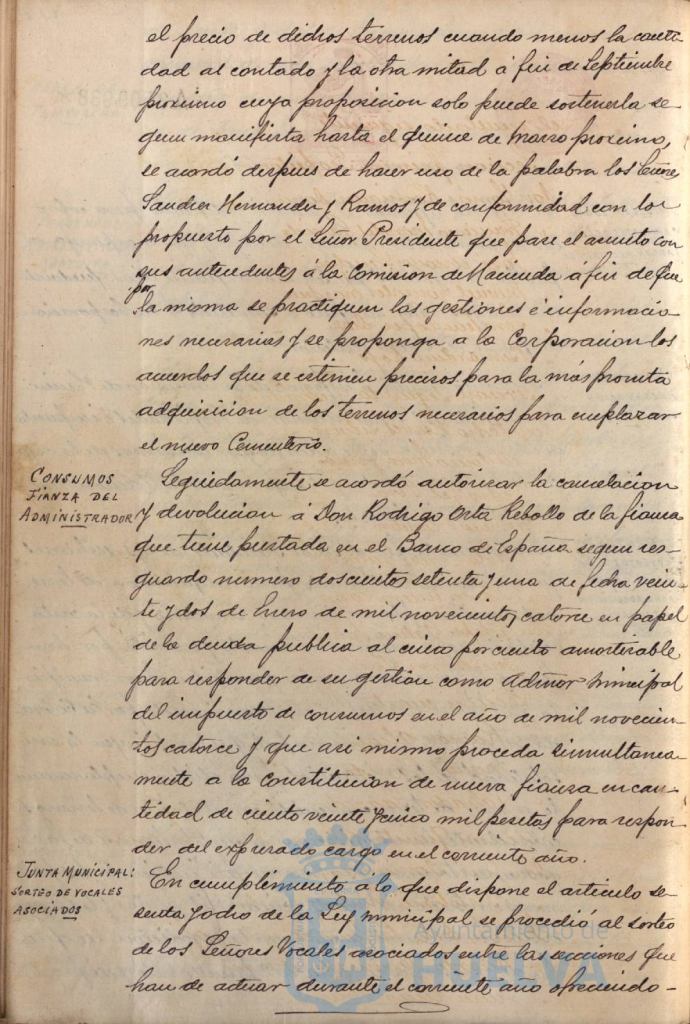 el precio de dichos terrenos cuando menos la canti-
dad al contado y la otra mitad á fin de Septiembre
proximo cuya proposicion solo puede sostenerla se-
gun manifiesta hasta el quince de Marzo proximo,
se acordó despues de hacer uso de la palabra los Señores
Sanchez Hernandez y Ramos y de conformidad con lo
propuesto por el Señor Presidente que pase el asunto con
sus antecedentes á la Comision de Hacienda á fin de que
por
la misma se practiquen las gestiones é informacio-
nes necesarias y se proponga a la Corporacion los
acuerdos que se estimen precisos para la más pronta
adquisicion de los terrenos necesarios para emplazar
el nuevo Cementerio.
CONSUMOS
FIANZA DEL
ADMINISTRADOR
Seguidamente se acordó autorizar la cancelacion
y devolucion á Don Rodrigo Orta Rebollo de la fianza
que tiene prestada en el Banco de España segun res-
guardo numero doscientos setenta y una de fecha vein-
te y dos de Enero de mil novecientos catorce en papel
de la deuda publica al cinco por ciento amortizable
para responder de su gestion como Admor Municipal
del impuesto de consumos en el año de mil novecien-
tos catorce y que asi mismo proceda simultanea-
mente a la constitucion de nueva fianza en can-
tidad de ciento veinte y cinco mil pesetas para respon-
der del expresado cargo en el corriente año.
JUNTA MUNICIPAL:
SORTEO DE VOCALES
ASOCIADOS
En cumplimiento á lo que dispone el articulo se-
senta y ocho de la Ley municipal se procedió al sorteo
de los Señores Vocales asociados entre las secciones que
han de actuar durante el corriente año ofreciendo-
Ayuntamiento de
HUELVA